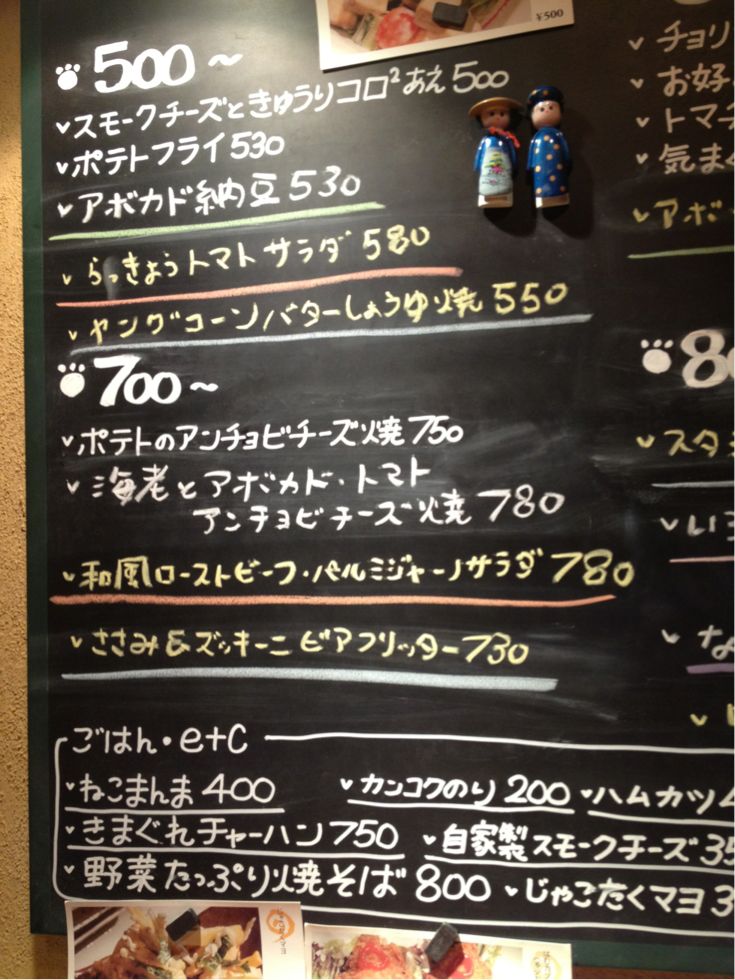 ¥500
500～
スモークチーズときゅうりコロ²あえ 500
ポテトフライ 530
アボカド納豆 530
らっきょうトマトサラダ 580
ヤングコーンバターしょうゆ焼 550
700～
ポテトのアンチョビチーズ焼 750
海老とアボカド・トマト
アンチョビチーズ焼 780
和風ローストビーフ・パルミジャーノサラダ 780
ささみ&ズッキーニ ビアフリッター 730
チョリ
お好
トマ
気まぐ
アボ
スタ
ごはん・etc
ねこまんま 400 カンコクのり 200 ハムカツ
きまぐれチャーハン 750 自家製スモークチーズ 35
野菜たっぷり焼そば 800 じゃこたくマヨ 3